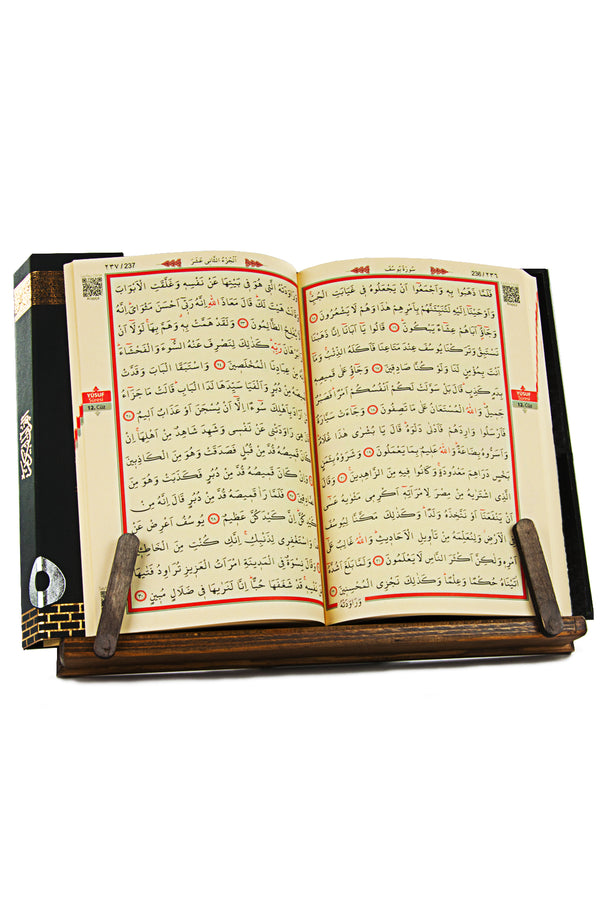 ٢٣٦ / 236
سُورَةُ يُوسُفَ
فَلَمَّا ذَهَبُوا بِهِ وَاَجْمَعُوا اَنْ يَجْعَلُوهُ فِي غَيَابَتِ الْجُبِّ
وَاَوْحَيْنَا اِلَيْهِ لَتُنَبِّئَنَّهُمْ بِاَمْرِهِمْ هٰذَا وَهُمْ لَا يَشْعُرُونَ ١٥
وَجَاؤُٓ اَبَاهُمْ عِشَاءً يَبْكُونَ ١٦ قَالُوا يَا اَبَانَا اِنَّا ذَهَبْنَا
نَسْتَبِقُ وَتَرَكْنَا يُوسُفَ عِنْدَ مَتَاعِنَا فَاَكَلَهُ الذِّئْبُ وَمَا
اَنْتَ بِمُؤْمِنٍ لَنَا وَلَوْ كُنَّا صَادِقِينَ ١٧ وَجَاؤُ عَلٰى قَمِيصِهِ
بِدَمٍ كَذِبٍ قَالَ بَلْ سَوَّلَتْ لَكُمْ اَنْفُسُكُمْ اَمْرًا فَصَبْرٌ
جَمِيلٌ وَاللّٰهُ الْمُسْتَعَانُ عَلٰى مَا تَصِفُونَ ١٨ وَجَاءَتْ سَيَّارَةٌ
فَاَرْسَلُوا وَارِدَهُمْ فَاَدْلٰى دَلْوَهُ قَالَ يَا بُشْرٰى هٰذَا غُلَامٌ
وَاَسَرُّوهُ بِضَاعَةً وَاللّٰهُ عَلِيمٌ بِمَا يَعْمَلُونَ ١٩ وَشَرَوْهُ بِثَمَنٍ
بَخْسٍ دَرَاهِمَ مَعْدُودَةٍ وَكَانُوا فِيهِ مِنَ الزَّاهِدِينَ ٢٠ وَقَالَ
الَّذِي اشْتَرٰيهُ مِنْ مِصْرَ لِامْرَاَتِهِ اَكْرِمِي مَثْوٰيهُ عَسٰى
اَنْ يَنْفَعَنَا اَوْ نَتَّخِذَهُ وَلَدًا وَكَذٰلِكَ مَكَّنَّا لِيُوسُفَ
فِي الْاَرْضِ وَلِنُعَلِّمَهُ مِنْ تَاْوِيلِ الْاَحَادِيثِ وَاللّٰهُ غَالِبٌ عَلٰى
اَمْرِهِ وَلٰكِنَّ اَكْثَرَ النَّاسِ لَا يَعْلَمُونَ ٢١ وَلَمَّا بَلَغَ اَشُدَّهُ
اٰتَيْنَاهُ حُكْمًا وَعِلْمًا وَكَذٰلِكَ نَجْزِي الْمُحْسِنِينَ ٢٢
وَرَاوَدَتْهُ
YÛSUF
Sûresi
12. Cüz
اَلْجُزْءُ الثَّانِي عَشَرَ
٢٣٧ / 237
وَرَاوَدَتْهُ الَّتِي هُوَ فِي بَيْتِهَا عَنْ نَفْسِهِ وَغَلَّقَتِ الْاَبْوَابَ
هَيْتَ لَكَ قَالَ مَعَاذَ اللّٰهِ اِنَّهُ رَبِّي اَحْسَنَ مَثْوَايَ اِنَّهُ
يُفْلِحُ الظَّالِمُونَ ٢٣ وَلَقَدْ هَمَّتْ بِهِ وَهَمَّ بِهَا لَوْلَا اَنْ
بُرْهَانَ رَبِّهِ كَذٰلِكَ لِنَصْرِفَ عَنْهُ السُّوءَ وَالْفَحْشَاءَ
مِنْ عِبَادِنَا الْمُخْلَصِينَ ٢٤ وَاسْتَبَقَا الْبَابَ وَقَدَّتْ
مِنْ دُبُرٍ وَاَلْفَيَا سَيِّدَهَا لَدَا الْبَابِ قَالَتْ مَا جَزَاءُ
بِاَهْلِكَ سُوءًا اِلَّا اَنْ يُسْجَنَ اَوْ عَذَابٌ اَلِيمٌ ٢٥
هِيَ رَاوَدَتْنِي عَنْ نَفْسِي وَشَهِدَ شَاهِدٌ مِنْ اَهْلِهَا اِنْ
قَمِيصُهُ قُدَّ مِنْ قُبُلٍ فَصَدَقَتْ وَهُوَ مِنَ الْكَاذِبِينَ
وَاِنْ كَانَ قَمِيصُهُ قُدَّ مِنْ دُبُرٍ فَكَذَبَتْ وَهُوَ مِنَ
٢٧ فَلَمَّا رَاٰ قَمِيصَهُ قُدَّ مِنْ دُبُرٍ قَالَ اِنَّهُ مِنْ
اِنَّ كَيْدَكُنَّ عَظِيمٌ ٢٨ يُوسُفُ اَعْرِضْ عَنْ
وَاسْتَغْفِرِي لِذَنْبِكِ اِنَّكِ كُنْتِ مِنَ
وَقَالَ نِسْوَةٌ فِي الْمَدِينَةِ امْرَاَتُ الْعَزِيزِ تُرَاوِدُ فَتٰيهَا
قَدْ شَغَفَهَا حُبًّا اِنَّا لَنَرٰيهَا فِي ضَلَالٍ مُبِينٍ ٣٠
YÛSUF
Sûresi
12. Cüz